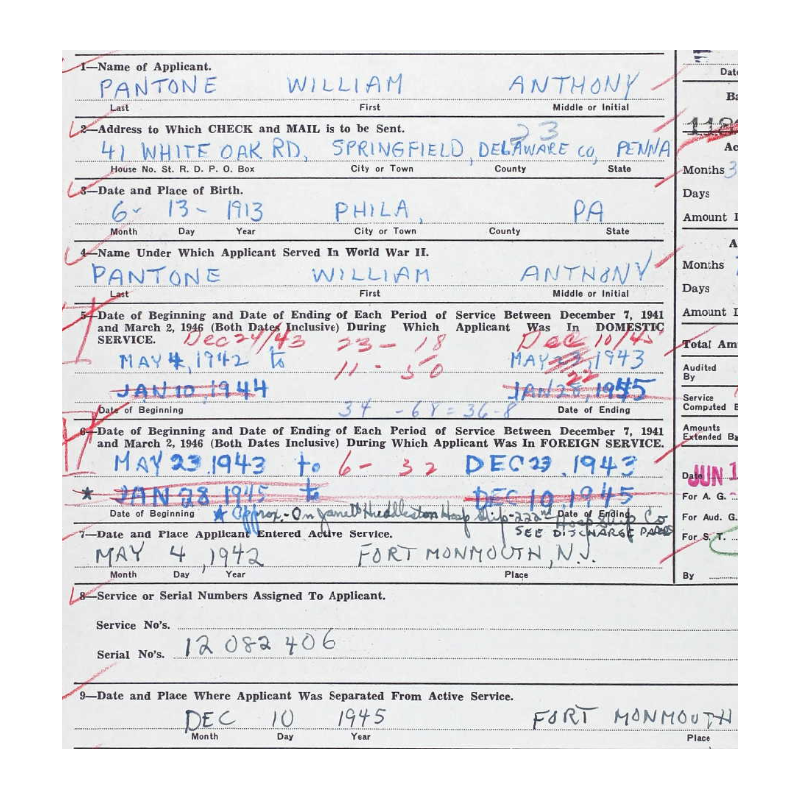 1—Name of Applicant.
PANTONE WILLIAM ANTHONY
Last First Middle or Initial
2—Address to Which CHECK and MAIL is to be Sent.
23
41 WHITE OAK RD, SPRINGFIELD, DELAWARE CO, PENNA
House No. St. R. D. P. O. Box City or Town County State
3—Date and Place of Birth.
6- 13- 1913 PHILA, PA
Month Day Year City or Town County State
4—Name Under Which Applicant Served In World War II.
PANTONE WILLIAM ANTHONY
Last First Middle or Initial
5—Date of Beginning and Date of Ending of Each Period of Service Between December 7, 1941
and March 2, 1946 (Both Dates Inclusive) During Which Applicant Was In DOMESTIC
SERVICE. Dec 24/43 23 - 18 Dec 10/45
MAY 4, 1942 to 11 - 50 MAY 22, 1943
JAN 10, 1944 JAN 28, 1945
Date of Beginning 34 - 68 = 36-8 Date of Ending
6—Date of Beginning and Date of Ending of Each Period of Service Between December 7, 1941
and March 2, 1946 (Both Dates Inclusive) During Which Applicant Was In FOREIGN SERVICE.
MAY 23 1943 to 6 - 32 DEC 23, 1943
* JAN 28 1945 to DEC 10, 1945
Date of Beginning Approx.- On Hosp Ship - 222nd Hosp Ship Co Date of Ending
SEE DISCHARGE PAPERS
7—Date and Place Applicant Entered Active Service.
MAY 4, 1942 FORT MONMOUTH, N.J.
Month Day Year Place
8—Service or Serial Numbers Assigned To Applicant.
Service No's.
Serial No's. 12 082 406
9—Date and Place Where Applicant Was Separated From Active Service.
DEC 10 1945 FORT MONMOUTH
Month Day Year Place
Date
Ba
118
Ac
Months 3
Days
Amount D
A
Months
Days
Amount D
Total Am
Audited
By
Service
Computed B
Amounts
Extended By
Date
JUN 1
For A. G.
For Aud. G.
For S. T.
By